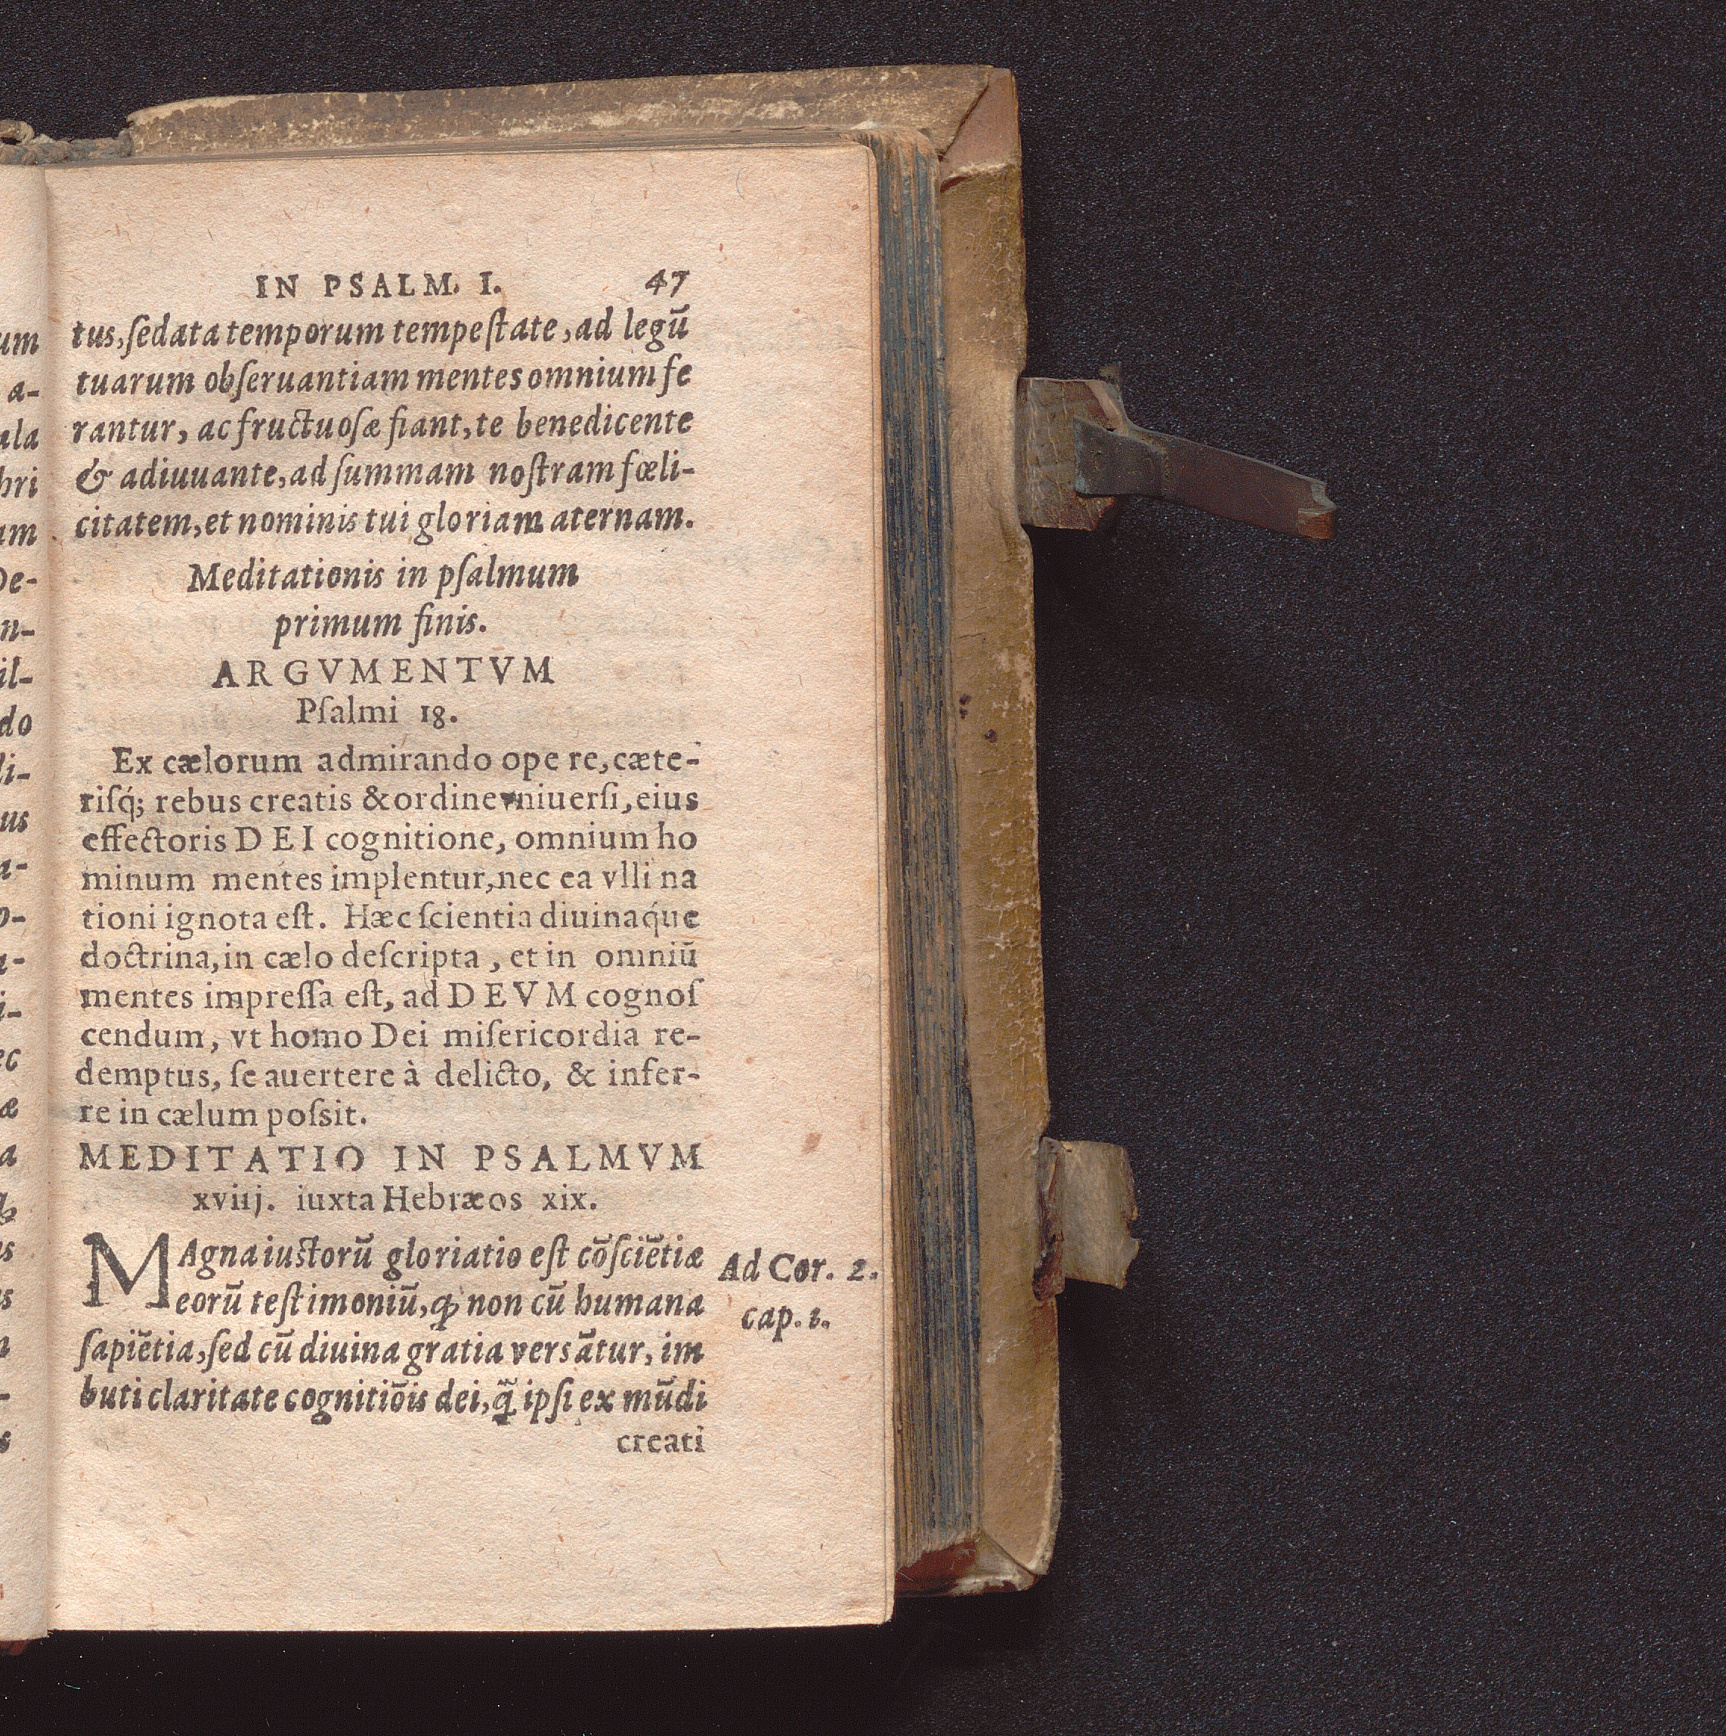 IN PSALM. I. 47
tus, ſedata temporum tempeſtate, ad legū
tuarum obſeruantiam mentes omnium fe
rantur, ac fructuoſæ fiant, te benedicente
& adiuuante, ad ſummam noſtram fœli-
citatem, et nominis tui gloriam aternam.
Meditationis in pſalmum
primum finis.
ARGVMENTVM
Pſalmi 18.
Ex cælorum admirando ope re, cæte-
riſq́; rebus creatis & ordine vniuerſi, eius
effectoris DEI cognitione, omnium ho
minum mentes implentur, nec ea vlli na
tioni ignota eſt. Hæc ſcientia diuinaq́ue
doctrina, in cælo deſcripta, et in omniū
mentes impreſſa eſt, ad DEVM cognoſ
cendum, vt homo Dei miſericordia re-
demptus, ſe auertere à delicto, & infer-
re in cælum poſsit.
MEDITATIO IN PSALMVM
xviij. iuxta Hebræos xix.
MAgna iuſtorū gloriatio eſt cōſciētiæ
eorū teſtimoniū, ꝙ non cū humana
ſapiētia, ſed cū diuina gratia versātur, im
buti claritate cognitiōis dei, q̃ ipſi ex mūdi
creati
Ad Cor. 2.
cap. 1.
um
a-
ala
bri
um
De-
n-
il-
do
li-
us
a-
o-
a-
i-
ec
æ
a